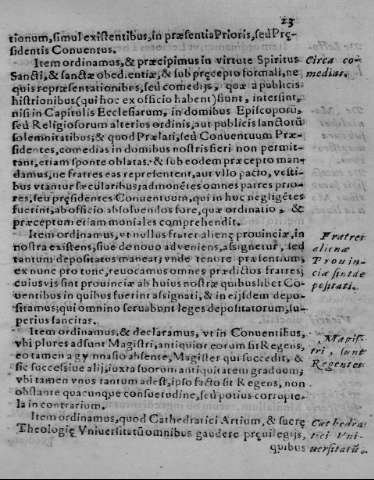 23
tionum, simul existentibus, in præsentia Prioris, seu Pręsidentis Conuentus.
Item ordinamus, & præcipimus in virtute Spiritus
Sancti, & sanctæ obedientiæ, & sub pręcepto formali, ne
quis repræsentationibus, seu comedijs, quæ à publicis
histrionibus (qui hoc ex officio habent) fiunt, intersint,
nisi in Capitulis Ecclesiarum, in domibus Episcoporũ,
seu Religiosorum alterius ordinis, aut publicis sanctorũ
solemnitatibus; & quod Prælati, seu Conuentuum Præ-
sidentes, comedias in domibus nostris fieri non permit-
tant, etiam sponte oblatas: & sub eodem præcepto man-
damus, ne fratres eas repræsentent, aut vllo pacto, vesti-
bus vtantur sæcularibus; admonētes omnes patres prio-
res, seu pręsidentes Conuentuum, qui in huc negligētes
fuerint, ab officio absoluendos fore, quæ ordinatio, &
præceptum etiam moniales comprehendit.
Circa co-
medias.
Item ordinamus, vt nullus frater alienę prouinciæ, in
nostra existens, siue de nouo adueniens, assignetur, sed
tantum depositatus maneat; vnde tenore præsentium,
ex nunc pro tunc, reuocamus omnes prædictos fratres,
cuiusvis sint prouinciæ ab huius nostræ quibuslibet Co
uentibus in quibus fuerint assignati, & in eijsdem depo-
sitamus; qui omnino seruabunt leges depositatorum, su-
perius sancitas.
Fratres
alienæ
Prouin-
ciæ sint de
positati.
Item ordinamus, & declaramus, vt in Conuentibus,
vbi plures adsunt Magistri, antiquior eorum sit Regens,
eo tamen a gymnasio absente, Magister qui succedit, &
sic successiue alij, iuxta suorum antiquitatem graduum;
vbi tamen vnus tantum adest, ipso facto sit Regens, non
obstante quacunque consuetudine, seu potius corrupte-
la in contrarium.
Magis-
tri, sunt
Regentes
Item ordinamus, quod Cathedratici Artium, & sacrę
Theologię Vniuersitatũ omnibus gaudere pręuilegijs,
quibus
Cathedra
tici Vni-
uersitatũ.